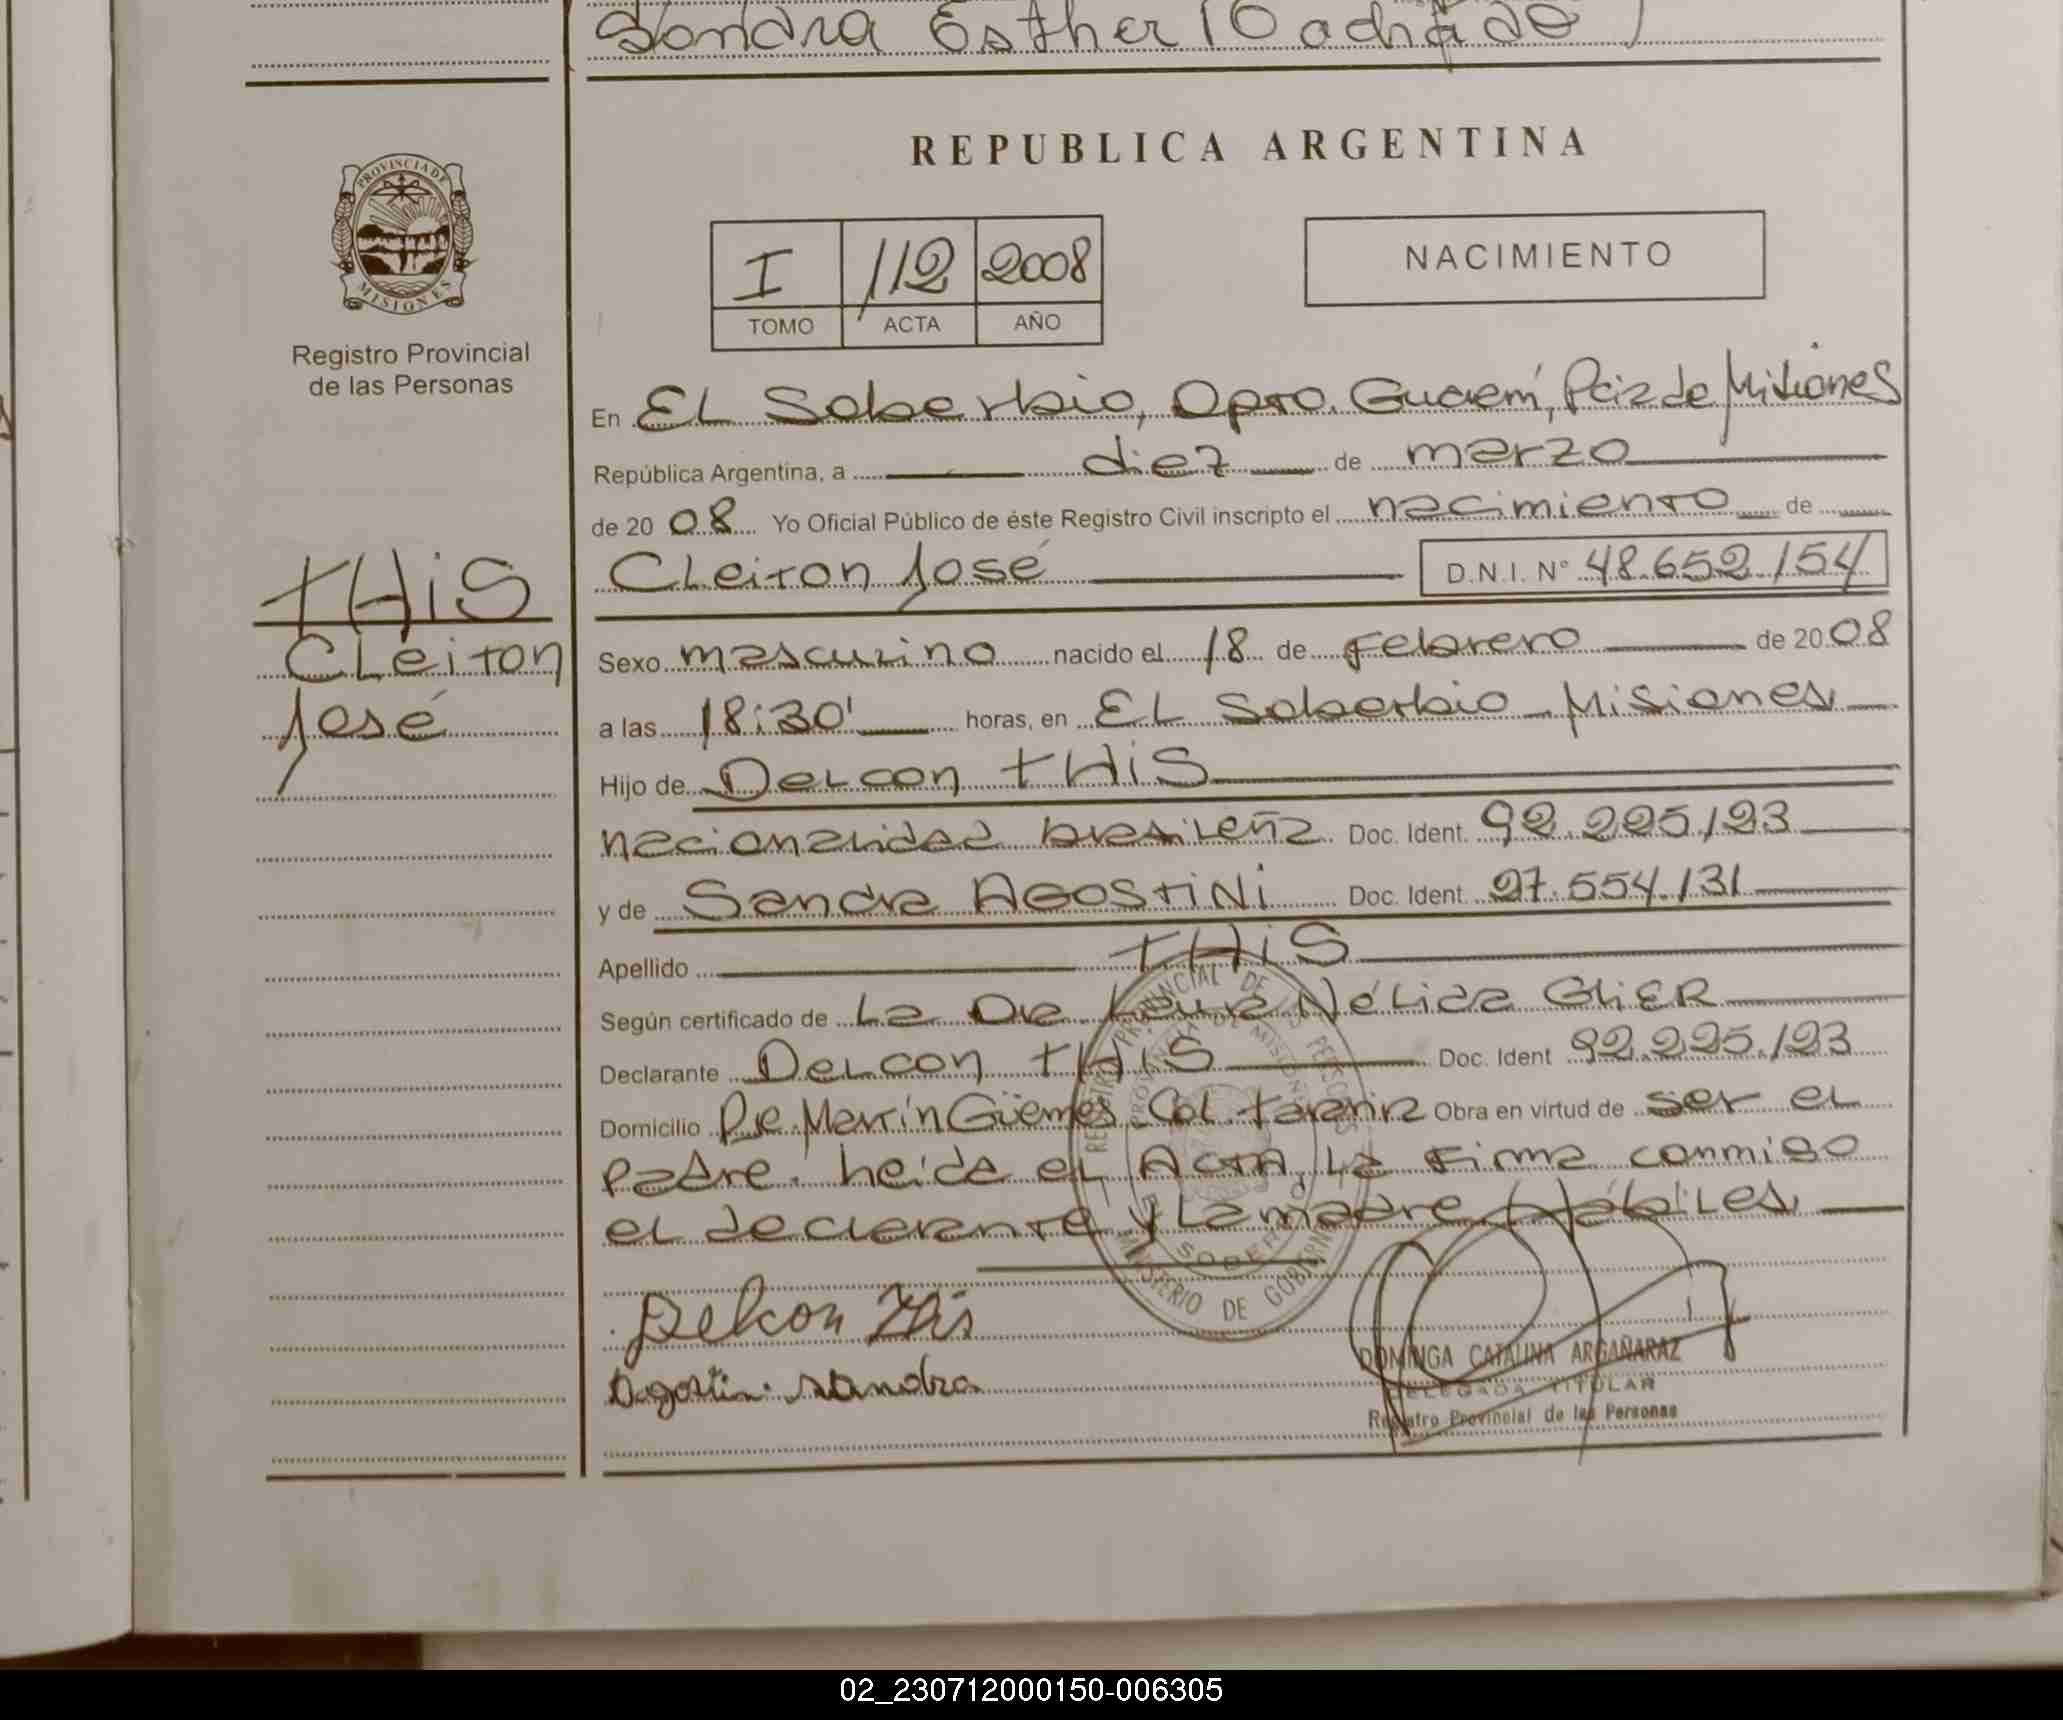 Sandra Esther (Cachade)
PROVINCIA DE
MISIONES
Registro Provincial
de las Personas
REPUBLICA ARGENTINA
I 112 2008
TOMO ACTA AÑO
NACIMIENTO
En EL Soberbio, Dpto. Guaraní, Pciz de Misiones
República Argentina, a diez de marzo
de 20 08 Yo Oficial Público de éste Registro Civil inscripto el nacimiento de
Cleiton José D.N.I. Nº 48.652.154
tHiS
Cleiton
José
Sexo masculino nacido el 18 de Febrero de 20 08
a las 18:30' horas, en EL Soberbio - Misiones
Hijo de Delcon tHiS
nacionalidad brasileña Doc. Ident. 92.225.123
y de Sandra AGOSTiNi Doc. Ident. 27.554.131
Apellido tHiS
Según certificado de La Dra Nélida GliER
Declarante Delcon tHiS Doc. Ident 92.225.123
Domicilio Martín Güemes Col. Obra en virtud de ser el
padre. heida el Acta, la Firma conmigo
el declarante y la madre Hábiles
REGISTRO PROVINCIAL DE LAS PERSONAS
PROVINCIA DE MISIONES
SOBERBIO
MINISTERIO DE GOBIERNO
Delcon This
Agostini sandra
DOMINGA CATALINA ARGAÑARAZ
DELEGADA TITULAR
Registro Provincial de las Personas
02_230712000150-006305